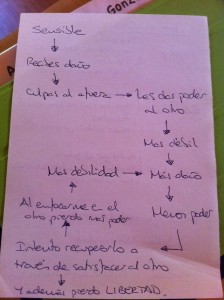 Gonz
Sensible
Recibes daño
Culpas al afuera → Les das poder
al otro
Mas débil
Mas debilidad ← Más daño
Al enfocarme en el
otro pierdo más poder
Menor poder
Intento recuperarlo a
través de satisfacer al otro
Y además pierdo LIBERTAD.